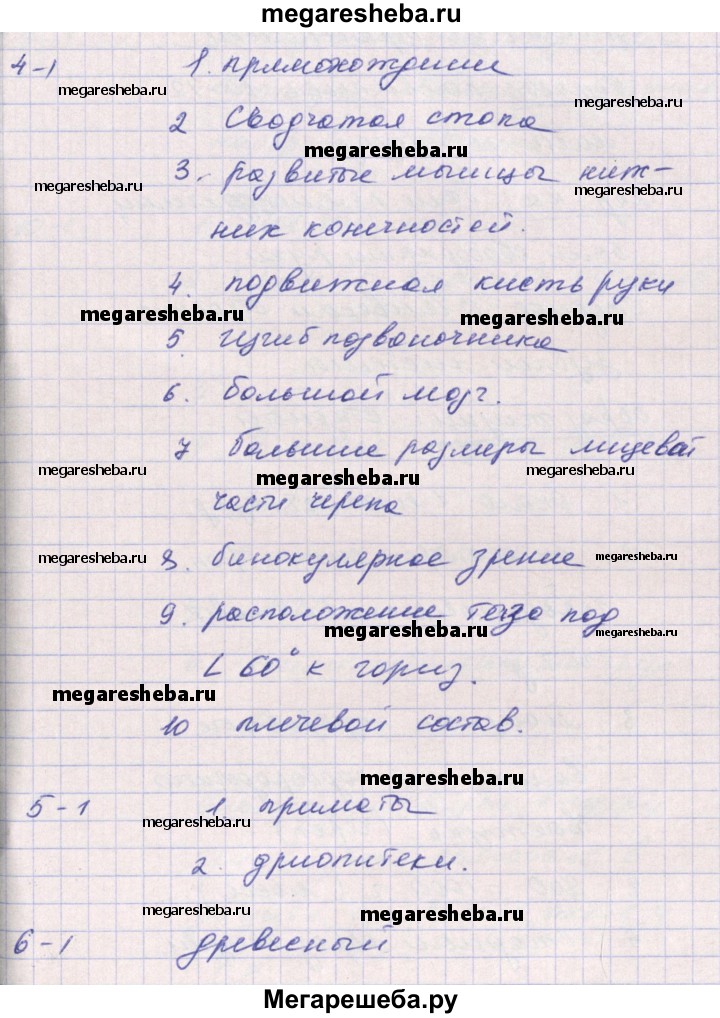 megaresheba.ru
4-1 1. прямохождение
megaresheba.ru megaresheba.ru
2 Сводчатая стопа
megaresheba.ru
3. развитые мышцы ниж-
megaresheba.ru megaresheba.ru
них конечностей.
4. подвижная кисть руки
megaresheba.ru megaresheba.ru
5. Изгиб позвоночника
6. большой мозг.
7 большие размеры лицевой
megaresheba.ru megaresheba.ru megaresheba.ru
части черепа
8. бинокулярное зрение
megaresheba.ru megaresheba.ru
9. расположение таза под
megaresheba.ru megaresheba.ru
∠ 60° к гориз.
megaresheba.ru
10 плечевой состав.
megaresheba.ru
5-1 1. приматы
megaresheba.ru
2. дриопитеки.
megaresheba.ru megaresheba.ru
6-1 древесный
Мегарешеба.ру